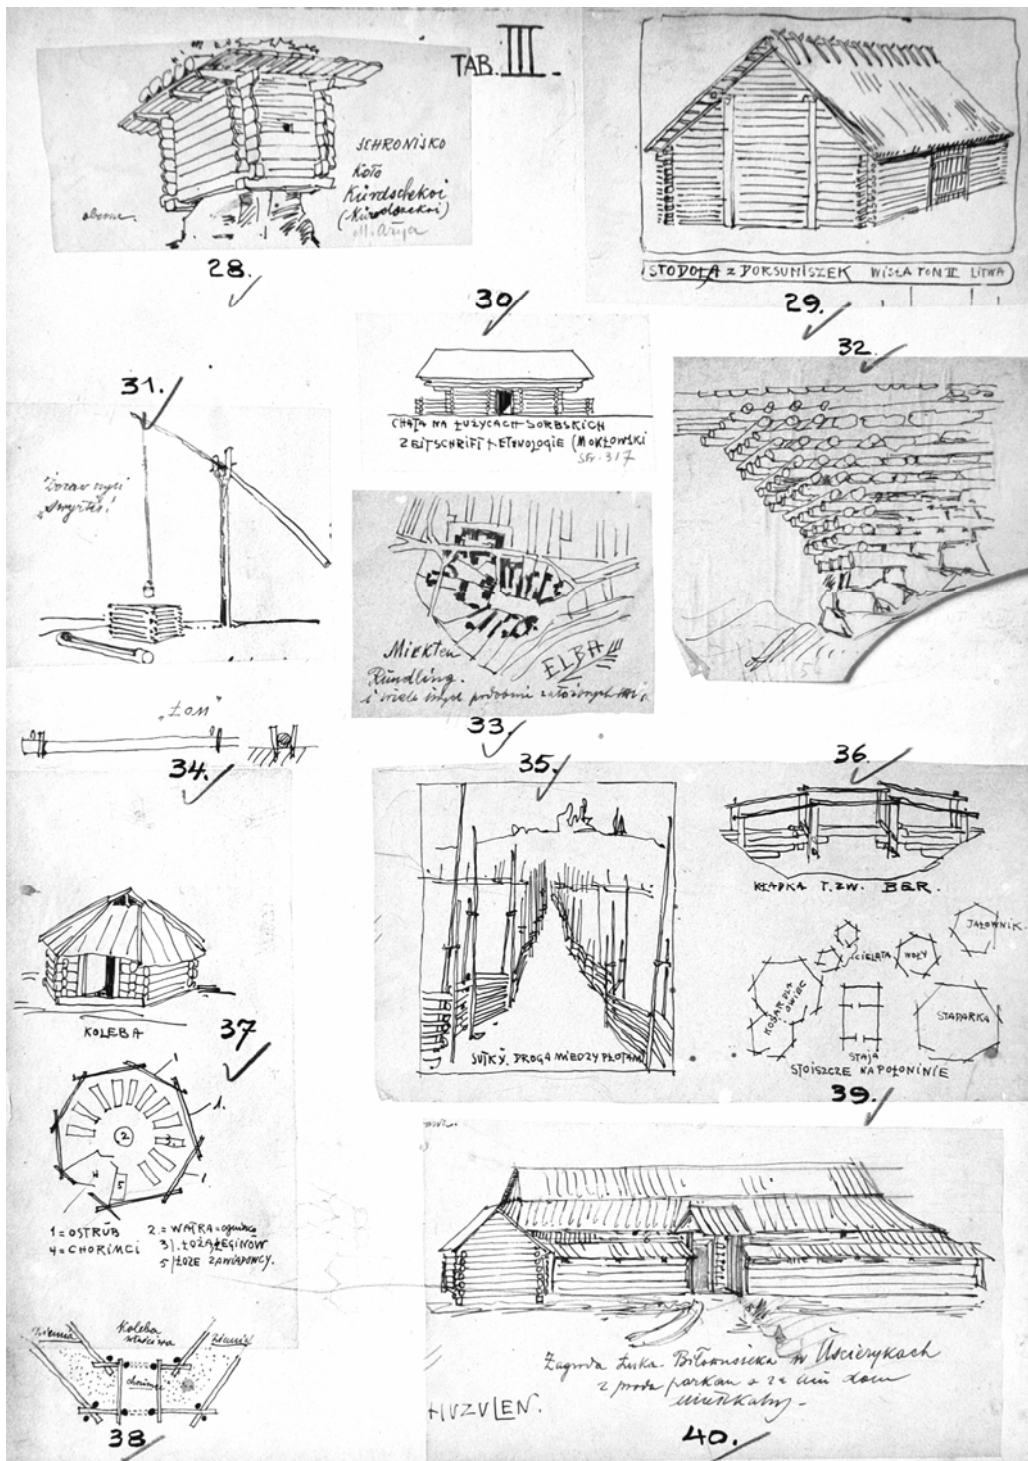 TAB. III.
SCHRONISKO
KOŁO
Kürdschekoi
28.
STODOŁA Z DORSUNISZEK WISŁA TOM III LITWA
29.
30
CHATA NA ŁUŻYCACH SORBSKICH
ZEITSCHRIFT f. ETNOLOGIE (MOKŁOWSKI
str. 317
31.
32.
Mickten
Rundling.
ELBA
33.
"ŁOW"
34.
35.
SUTKY. DROGA MIEDZY PŁOTAMI
36.
KŁADKA T.ZW. BER.
JAŁOWNIK.
CIELĄTA
WOŁY
KOSAR DLA
OWIEC
STADARKA
STAJA
STOISZCZE NA POŁONINIE
39.
KOLEBA
37
1.
1
2
3
4
5
1 = OSTRÚB 2 = WATRA = ognisko
4 = CHORIMCI 3). ŁOŻA ŁEGINÓW
5) ŁOŻE ZAWIADOWCY.
Ziemia
Koleba
właściwa
Ziemia
chorimci
38
Zagroda Łuka Biłorusieka w Uścierykach
z przodu parkan a za nim dom
mieszkalny -
HUZULEN.
40.